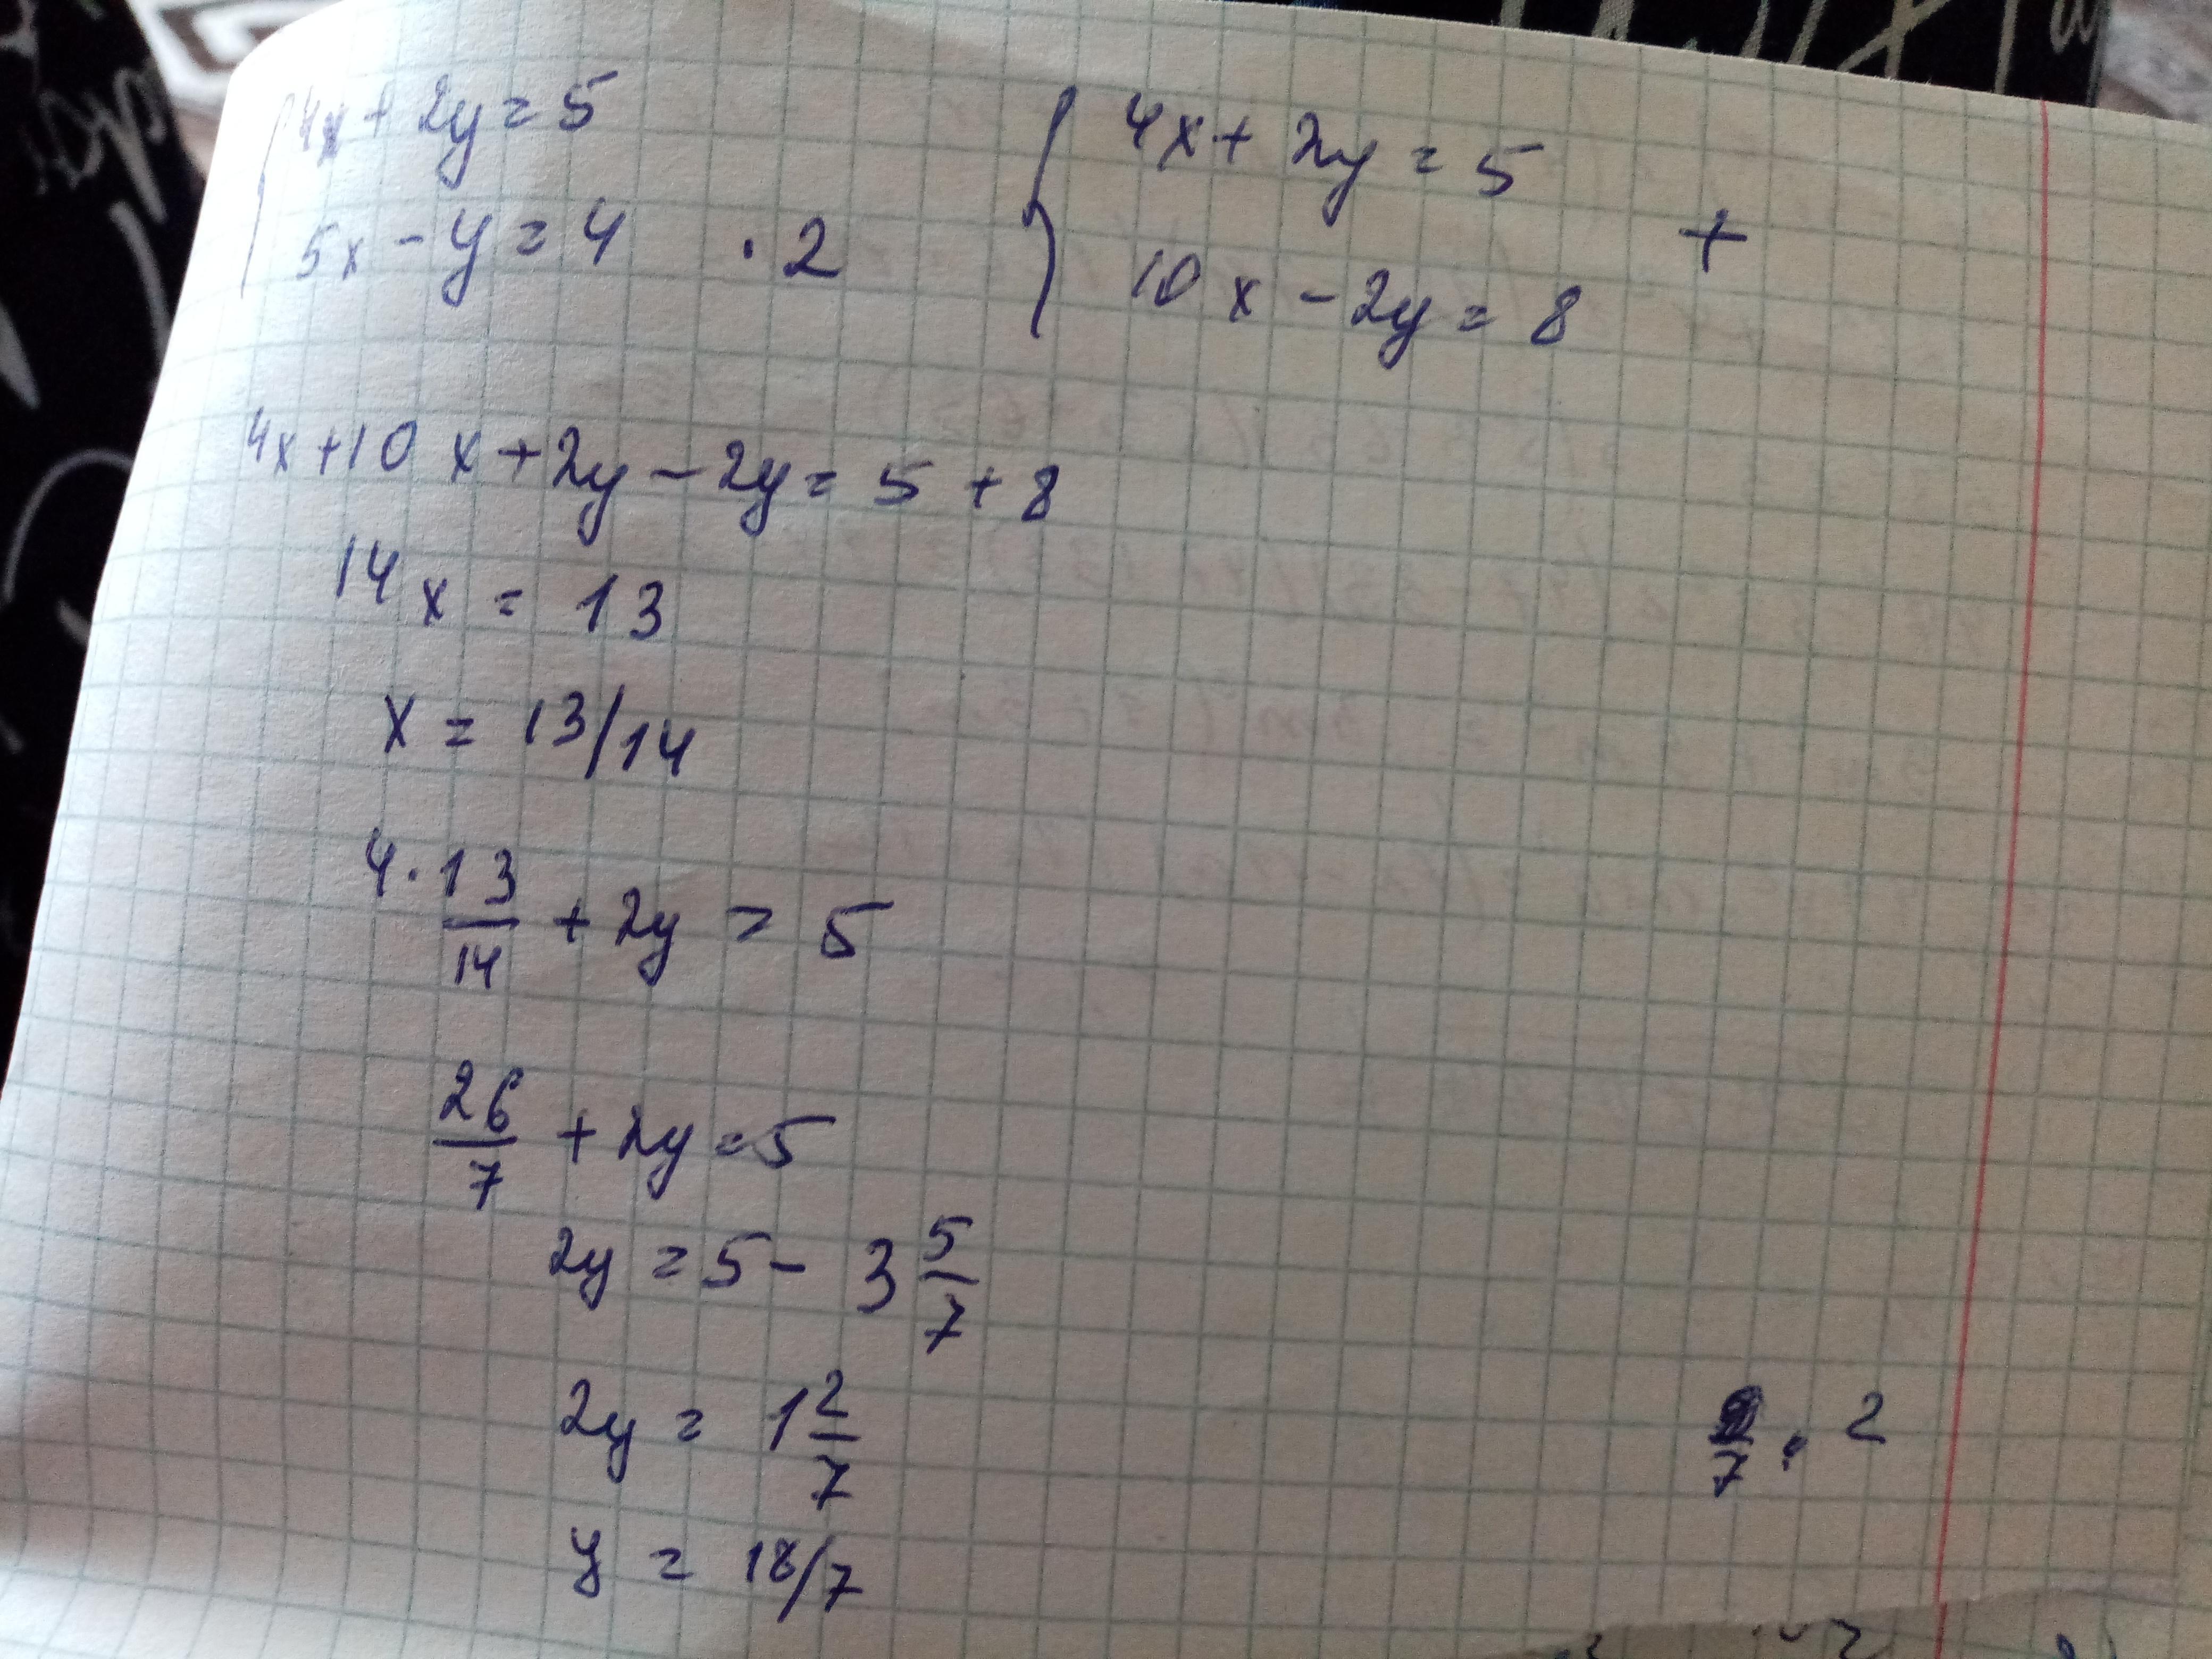 4x + 2y = 5
5x - y = 4 · 2
4x + 2y = 5
10x - 2y = 8 +
4x + 10x + 2y - 2y = 5 + 8
14x = 13
x = 13/14
4 · 13/14 + 2y = 5
26/7 + 2y = 5
2y = 5 - 3 5/7
2y = 1 2/7
9/7 · 2
y = 18/7